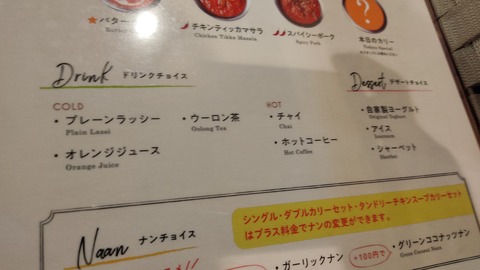 ★バター
チキンティッカマサラ
Chicken Tikka Masala
スパイシーポーク
Spicy Pork
?
本日のカリー
Drink ドリンクチョイス
Dessert デザートチョイス
COLD
・プレーンラッシー
Plain Lassi
・オレンジジュース
Orange Juice
・ウーロン茶
Oolong Tea
HOT
・チャイ
Chai
・ホットコーヒー
Hot Coffee
・自家製ヨーグルト
Original Yoghurt
・アイス
Icecream
・シャーベット
Sherbet
シングル・ダブルカリーセット・タンドリーチキンスープカリーセット
はプラス料金でナンの変更ができます。
Naan ナンチョイス
・ガーリックナン
+100円で
・グリーンココナッツナン
Green Coconut Naan